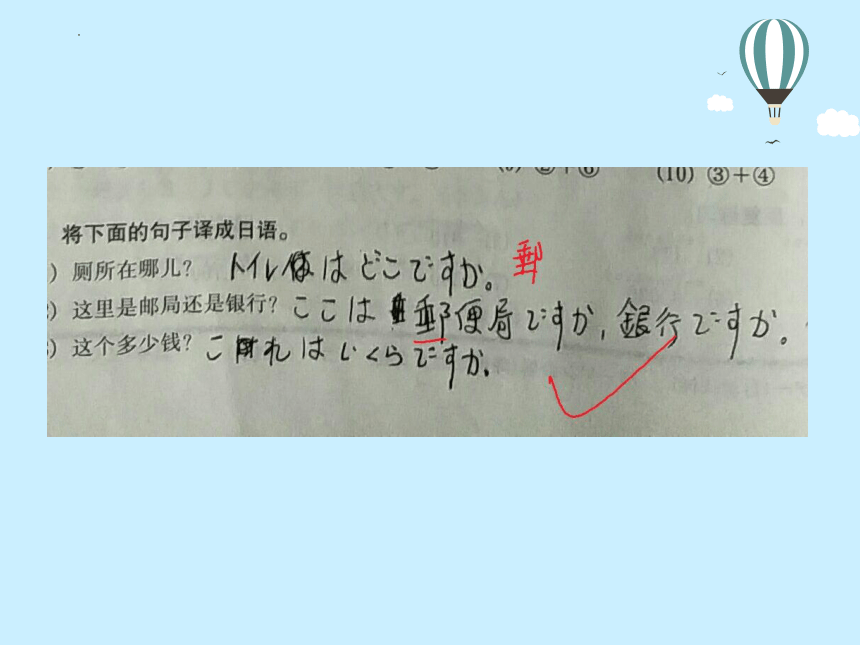 (10) ③+④
将下面的句子译成日语。
) 厕所在哪儿? トイレはどこですか。 郵
) 这里是邮局还是银行? ここは郵便局ですか,銀行ですか。
) 这个多少钱? これはいくらですか。